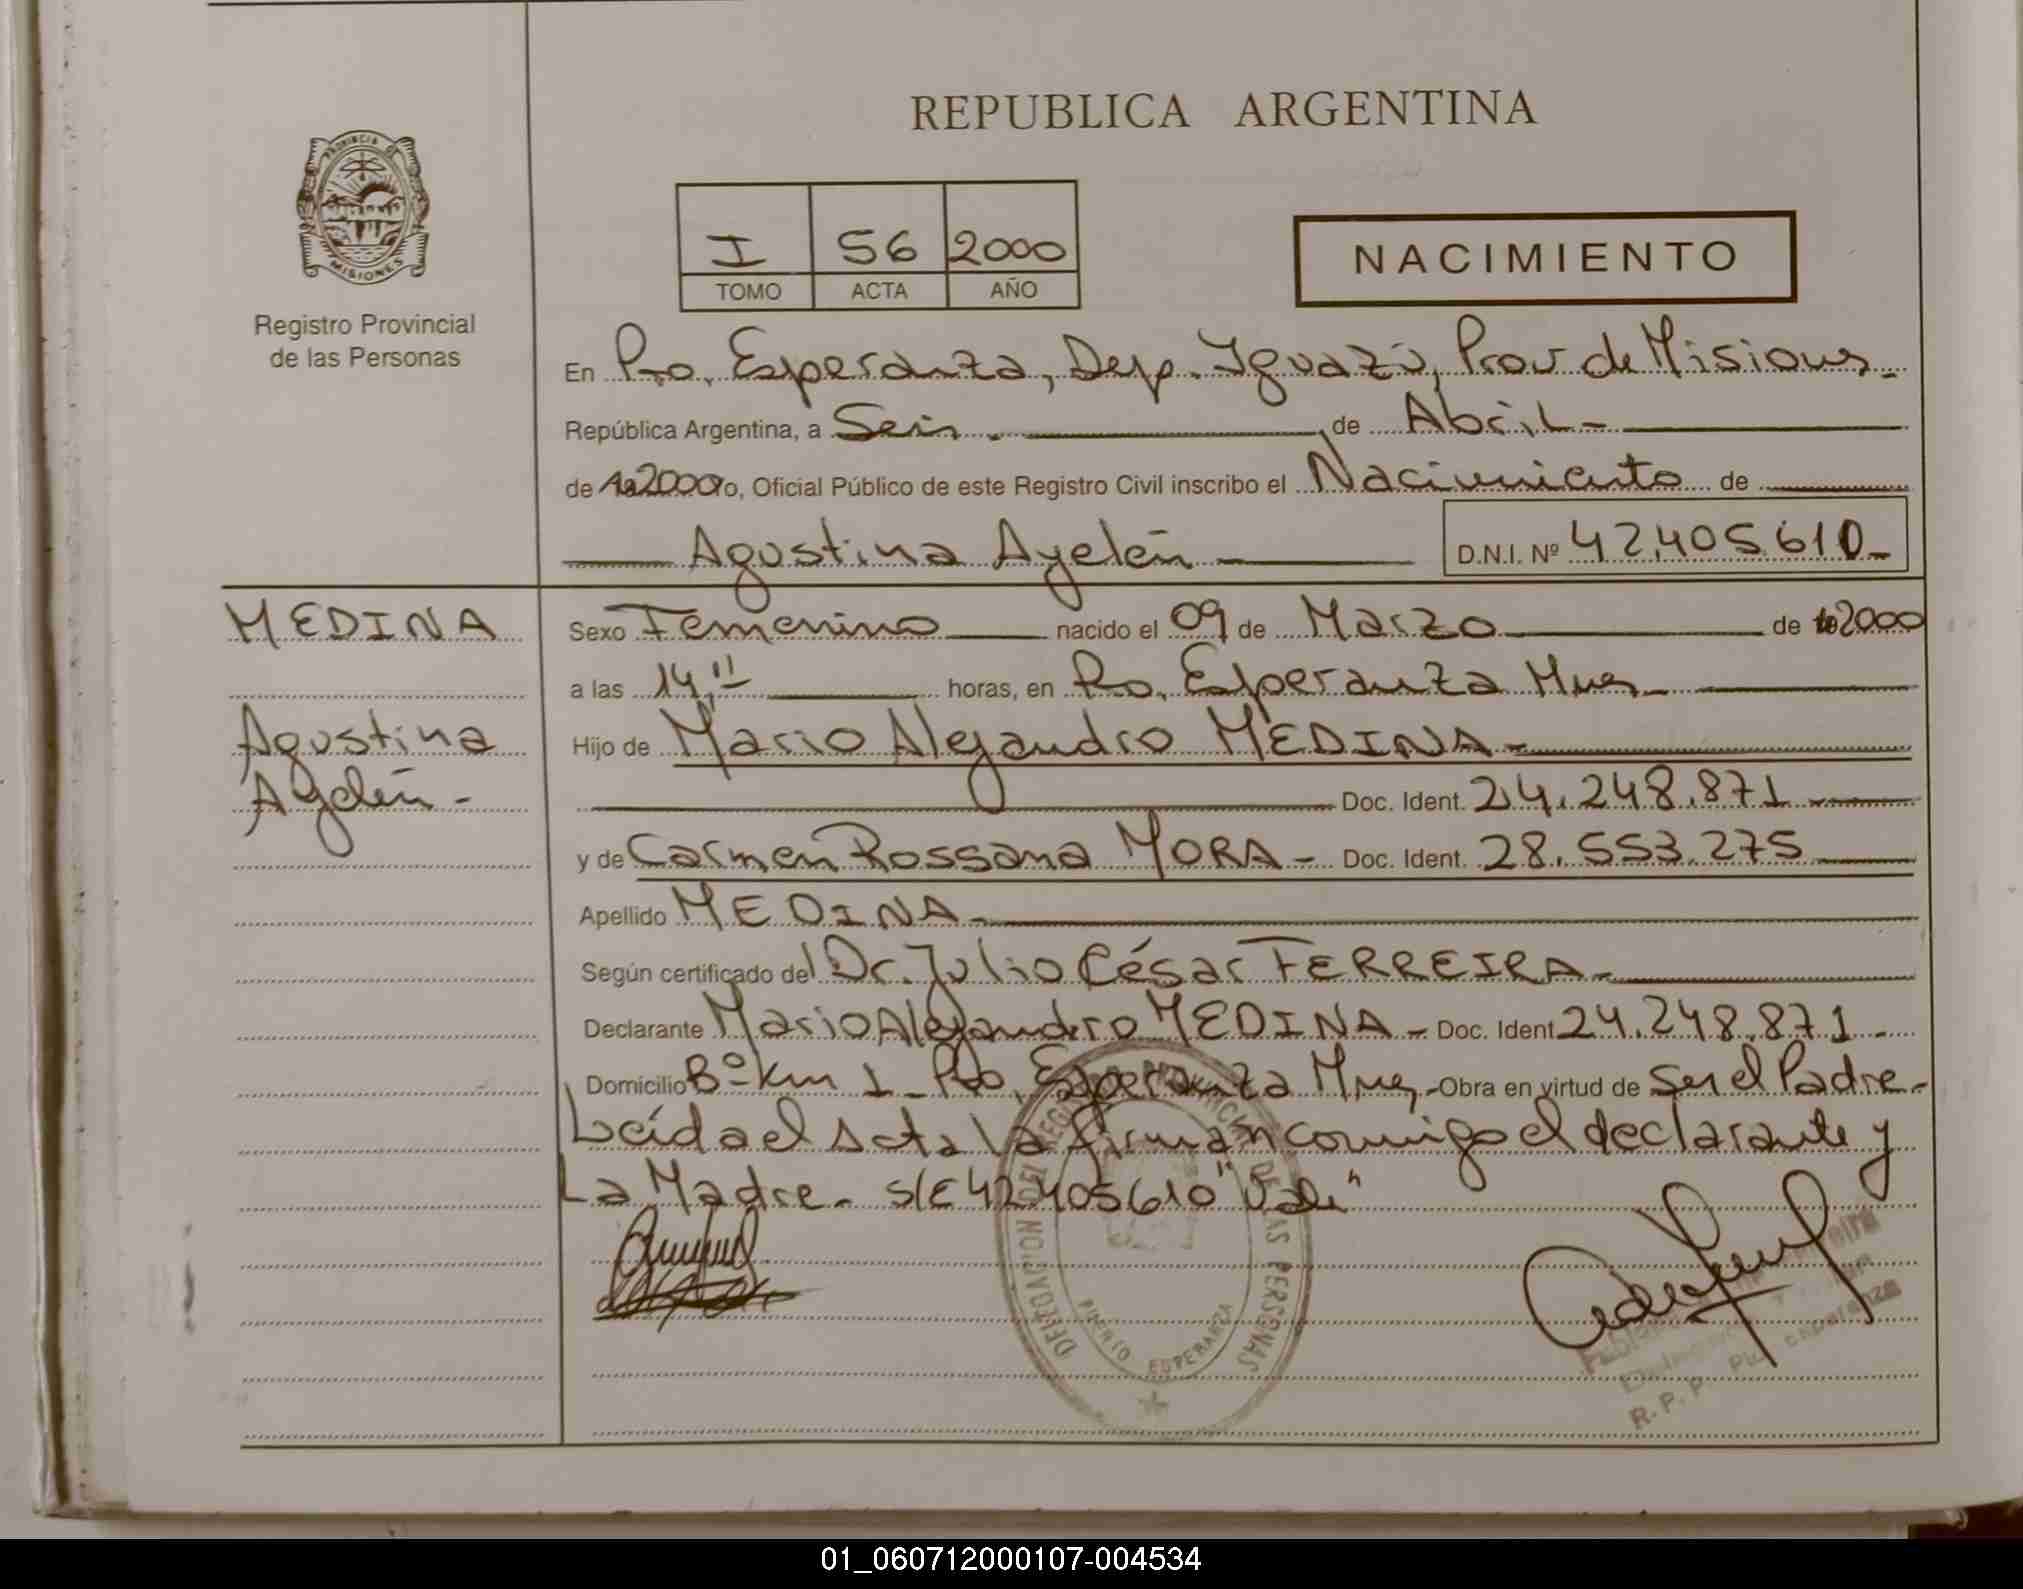 REPUBLICA ARGENTINA
PROVINCIA DE
MISIONES
Registro Provincial
de las Personas
I 56 2000
TOMO ACTA AÑO
NACIMIENTO
En Pto. Esperanza, Dep. Iguazú, Prov de Misiones.-
República Argentina, a Seis.- de Abril-
de 2000 yo, Oficial Público de este Registro Civil inscribo el Nacimiento de
Agustina Ayelén
D.N.I. Nº 42.405.610-
MEDINA
Agustina
Ayelén-
Sexo Femenino nacido el 09 de Marzo de 2000
a las 14,11 horas, en Pto. Esperanza Mnes-
Hijo de Mario Alejandro MEDINA-
Doc. Ident. 24.248.871
y de Carmen Rossana MORA- Doc. Ident. 28.553.275
Apellido MEDINA-
Según certificado del Dr. Julio César FERREIRA-
Declarante Mario Alejandro MEDINA- Doc. Ident 24.248.871-
Domicilio Bº km 1- Pto. Esperanza Mnes,- Obra en virtud de Ser el Padre-
Leída el Acta la firman conmigo el declarante y
La Madre- S/E 42.405610 "Vale"
DELEGACION DEL REGISTRO PROVINCIAL DE LAS PERSONAS
PUERTO ESPERANZA
R. P. P. Pto. Esperanza
01_060712000107-004534